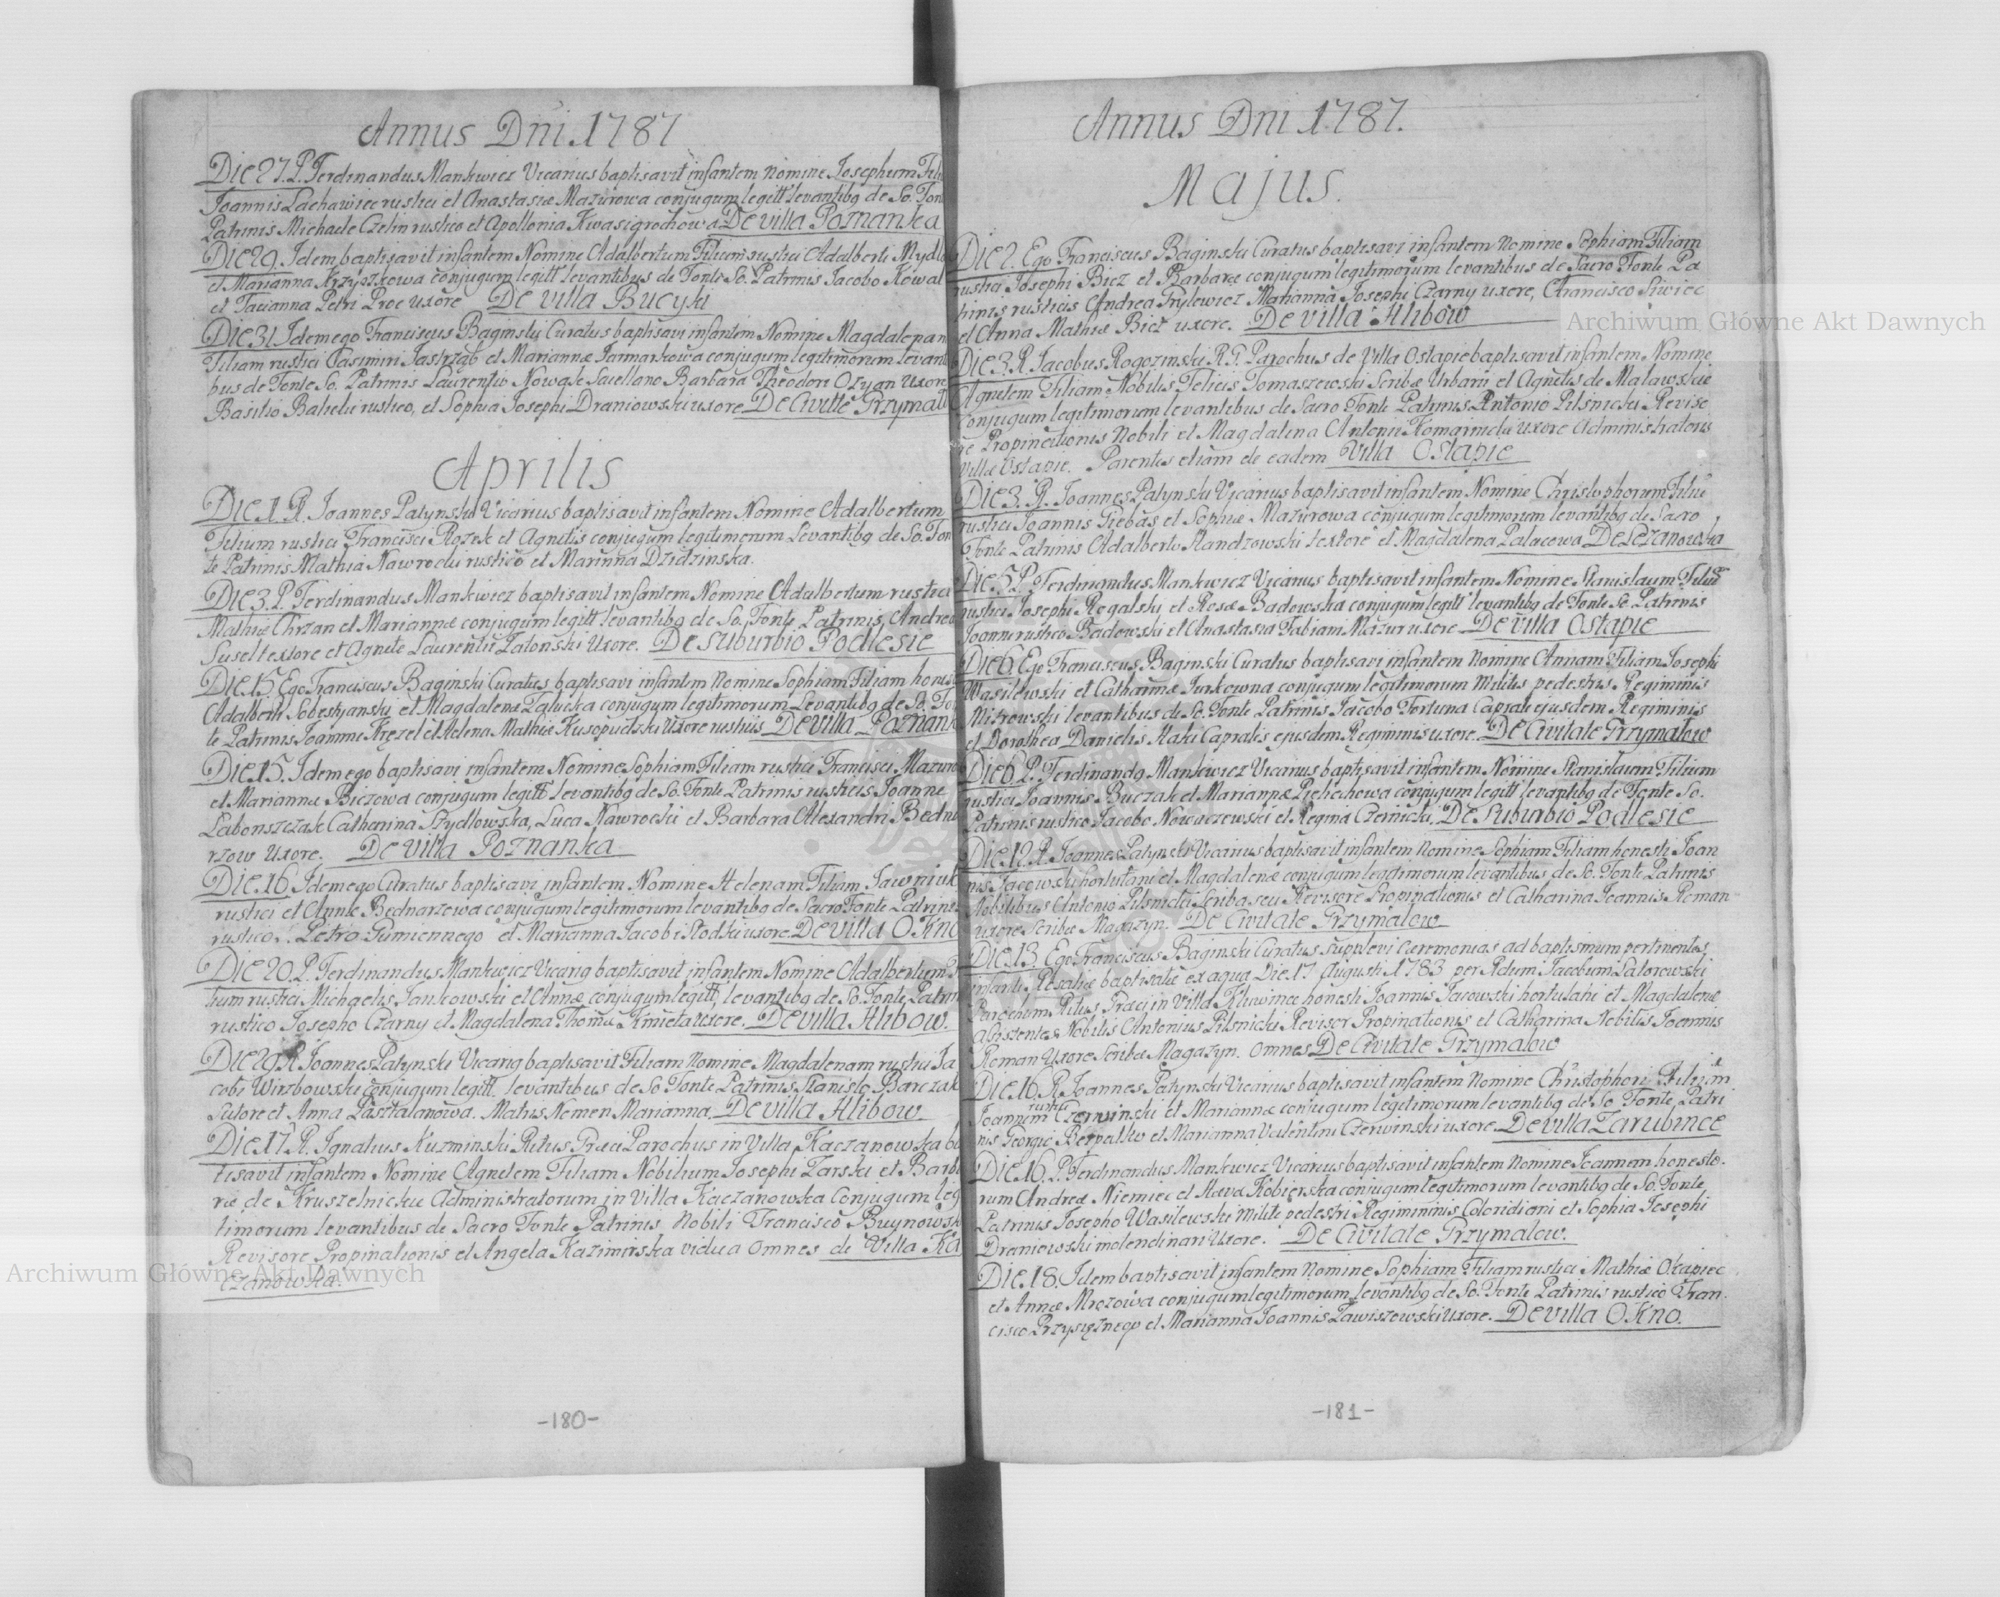 Annus Dni 1787
Die 27. P. Ferdinandus Mankwicz Vicarius baptisavit infantem Nomine Josephum Fili
Joannis Lachawiec rustici et Anastasiæ Mazurowa conjugum legitt levantibg de So. Fon
Patrinis Michaele Czelin rustico et Apollonia Kwasigrochowa De villa Poznanka
Die 29. Idem baptisavit infantem Nomine Adalbertum Filium rustici Adalberti Mydl
et Marianna Krzyszkowa conjugum legitt levantibus de Fonte So. Patrinis Jacobo Kowal
et Tacianna Petri Proc uxore De villa Bucyki
Die 31. Idem ego Franciscus Baginski Curatus baptisavi infantem Nomine Magdalenam
Filiam rustici Casimiri Jastrząb et Mariannæ Jarmarkowa conjugum legitimorum levant
bus de Fonte So. Patrinis Laurentio Nowak Barbara Theodori Ozyan Uxore
Basilio rustico, et Sophia Josephi Draniowski uxore De Civitte Grzymal
Aprilis
Die 1. R. Joannes Patynski Vicarius baptisavit infantem Nomine Adalbertum
Filium rustici Francisci Rązek et Agnetis conjugum legitimorum Levantibg de So. Fon
te Patrinis Mathia Nawrocki rustico et Marinna Dzidzinska.
Die 3. P. Ferdinandus Mankwicz baptisavit infantem Nomine Adalbertum rustici
Mathiæ Chrzan et Mariannæ conjugum legitt levantibg de So. Fonte Patrinis, Andrea
Susel textore et Agnete Laurentii Zatonski Uxore. De Suburbio Podlesie
Die 15 Ego Franciscus Baginski Curatus baptisavi infantem Nomine Sophiam Filiam hones
Adalberti Sobestjanski et Magdalena Pałucka conjugum legitimorum Levantibg de So. Fo
te Patrinis Joanne Kręzel et Helena Mathiæ Uxore rusticis De villa Poznank
Die 15. Idem ego baptisavi infantem Nomine Sophiam Filiam rustici Francisci Mazuro
et Mariannæ Biczowa conjugum legitt levantibg de So. Fonte Patrinis rusticis Joanne
Labonszczak Catharina Szydlowska, Luca Nawrocki et Barbara Alexandri Bedna
rzow Uxore. De villa Poznanka
Die 16 Idem ego Curatus baptisavi infantem Nomine Helenam Filiam
rustici et Annæ Bednarzowa conjugum legitimorum levantibg de Sacro Fonte Patrinis
rustico, Petro Gumiennego et Marianna Jacobi Słodki uxore De villa Okno
Die 20. P. Ferdinandus Mankwicz Vicarig baptisavit infantem Nomine Adalbertum F
lium rustici Michaelis Jankowski et Annæ conjugum legitt levantibg de So. Fonte Patrin
rustico Josepho Czarny et Magdalena Thomæ Kmieta uxore. De villa Hlibow.
Die 29 R Joannes Patynski Vicarig baptisavit Filiam Nomine Magdalenam rustici Ja
cobi Wirzbowski conjugum legitt. levantibus de So. Fonte Patrinis Stanislo Barczak
Sutore et Anna Pasztalanowa. Matris Nomen Marianna. De villa Hlibow
Die 17 R. Ignatius Kuzminski Ritus Græci Parochus in Villa Kaczanowska ba
tisavit infantem Nomine Agnetem Filiam Nobilium Josephi Zarski et Barba
ræ de Kruszelnicki Administratorum in Villa Kaczanowska Conjugum leg
timorum levantibus de Sacro Fonte Patrinis Nobili Francisco Buynowsk
Revisore Propinationis et Angela Kazimirska vidua omnes de Villa Ka
czanowska.
-180-
Annus Dni 1787.
Majus.
Die 2. Ego Franciscus Baginski Curatus baptisavi infantem Nomine Sophiam Filiam
rustici Josephi Bicz et Barbaræ conjugum legitimorum levantibus de Sacro Fonte Pa
trinis rusticis Andrea Marianna Josephi Czarny uxore, Francisco Siwiec
et Anna Mathiæ Bicz uxore. De villa Hlibow
Die 3. R. Jacobus Rogozinski R. G. Parochus de Villa Ostapie baptisavit infantem Nomine
Agnetem Filiam Nobilis Felicis Tomaszewski Scribæ Urbarii et Agnetis de Malawskie
Conjugum legitimorum levantibus de Sacro Fonte Patrinis Antonio Pilsnicki Reviso
re Propinationis Nobili et Magdalena Antonii Komarnicki uxore Administratoris
Villæ Ostapie. Parentes etiam de eadem Villa Ostapie
Die 3. R. Joannes Patynski Vicarius baptisavit infantem Nomine Christophorum Filiu
rustici Joannis Giebas et Sophiæ Mazurowa conjugum legitimorum levantibg de Sacro
Fonte Patrinis Adalberto Handzowski textore et Magdalena Palacowa De Lezanowka
Die 5 P. Ferdinandus Mankwicz Vicarius baptisavit infantem Nomine Stanislaum Filiu
rustici Josephi Rogalski et Rosæ Badowska conjugum legitt levantibg de Fonte So. Patrinis
Joanni rustico Badowski et Anastasia Fabiani Mazur uxore De villa Ostapie
Die 6 Ego Franciscus Baginski Curatus baptisavi infantem Nomine Annam Filiam Josephi
Wasilewski et Catharinæ Jurkowna conjugum legitimorum Militis pedestris Regiminis
Mitrowski levantibus de So. Fonte Patrinis Jacobo Fortuna Caprali ejusdem Regiminis
et Dorothea Danielis Haki Capralis ejusdem Regiminis uxore. De Civitate Grzymalow
Die 6 P. Ferdinandg Mankwicz Vicarius baptisavit infantem Nomine Stanislaum Filium
rustici Joannis Buczak et Mariannæ conjugum legitt levantibg de Fonte So.
Patrinis rustico Jacobo Nowaczewski et Regina Czernicki, De Suburbio Podlesie
Die 12 R. Joannes Patynski Vicarius baptisavit infantem Nomine Sophiam Filiam honesti Joan
nis Jacowski hortulani et Magdalenæ conjugum legitimorum levantibus de So. Fonte Patrinis
Nobilibus Antonio Pilsnicki Scriba seu Revisore Propinationis et Catharina Joannis Roman
uxore Scribæ Magazyn. De Civitate Grzymalow
Die 13. Ego Franciscus Baginski Curatus supplevi ceremonias ad baptismum pertinentes
infanti Rosaliæ baptisatæ ex aqua Die 17 Augusti 1783 per Rdum Jacobum
Parochum Ritus Græci in Villa honesti Joannis Jacowski hortulani et Magdalenæ
assistentes Nobilis Antonius Pilsnicki Revisor Propinationis et Catharina Nobilis Joannis
Roman Uxore Scribæ Magazyn. Omnes De Civitate Grzymalow
Die 16. R. Joannes Patynski Vicarius baptisavit infantem Nomine Christophori Filium
Joannem rustici Czerwinski et Mariannæ conjugum legitimorum levantibg de So. Fonte Patri
nis Georgio et Marianna Valentini Czerwinski uxore. De villa Zarubince
Die 16. P. Ferdinandus Mankwicz Vicarius baptisavit infantem Nomine Joannem honesto.
rum Andreæ Niemiec et Hava Kobierska conjugum legitimorum levantibg de So. Fonte
Patrinis Josepho Wasilewski Milite pedestri Regimininis Coloridiani et Sophia Josephi
Draniowski molendinari Uxore. De Civitate Grzymalow.
Die 18. Idem baptisavit infantem Nomine Sophiam Filiam rustici Mathiæ Okapiec
et Annæ Mrozowa conjugum legitimorum levantibg de So. Fonte Patrinis rustico Fran.
cisco Przysiężnego et Marianna Joannis Zawiszewski Uxore. De villa Okno.
-181-
Archiwum Główne Akt Dawnych
Archiwum Główne Akt Dawnych